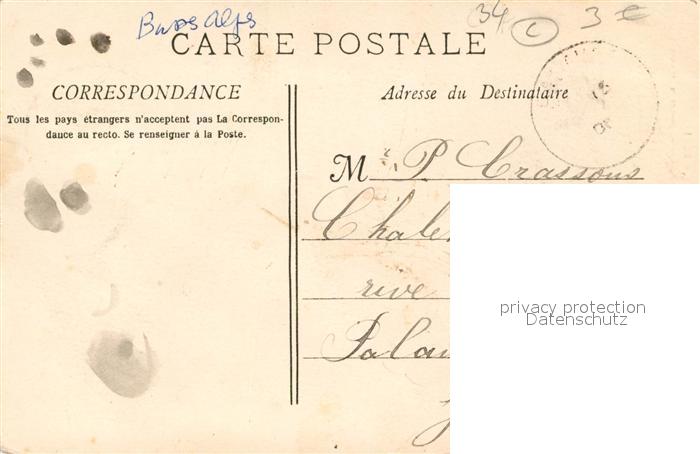 Basses Alpes
34 L 3 €
CARTE POSTALE
CORRESPONDANCE
Tous les pays étrangers n'acceptent pas La Correspon-
dance au recto. Se renseigner à la Poste.
Adresse du Destinataire
M P. Crassous
Chale
rive
Palau
privacy protection
Datenschutz